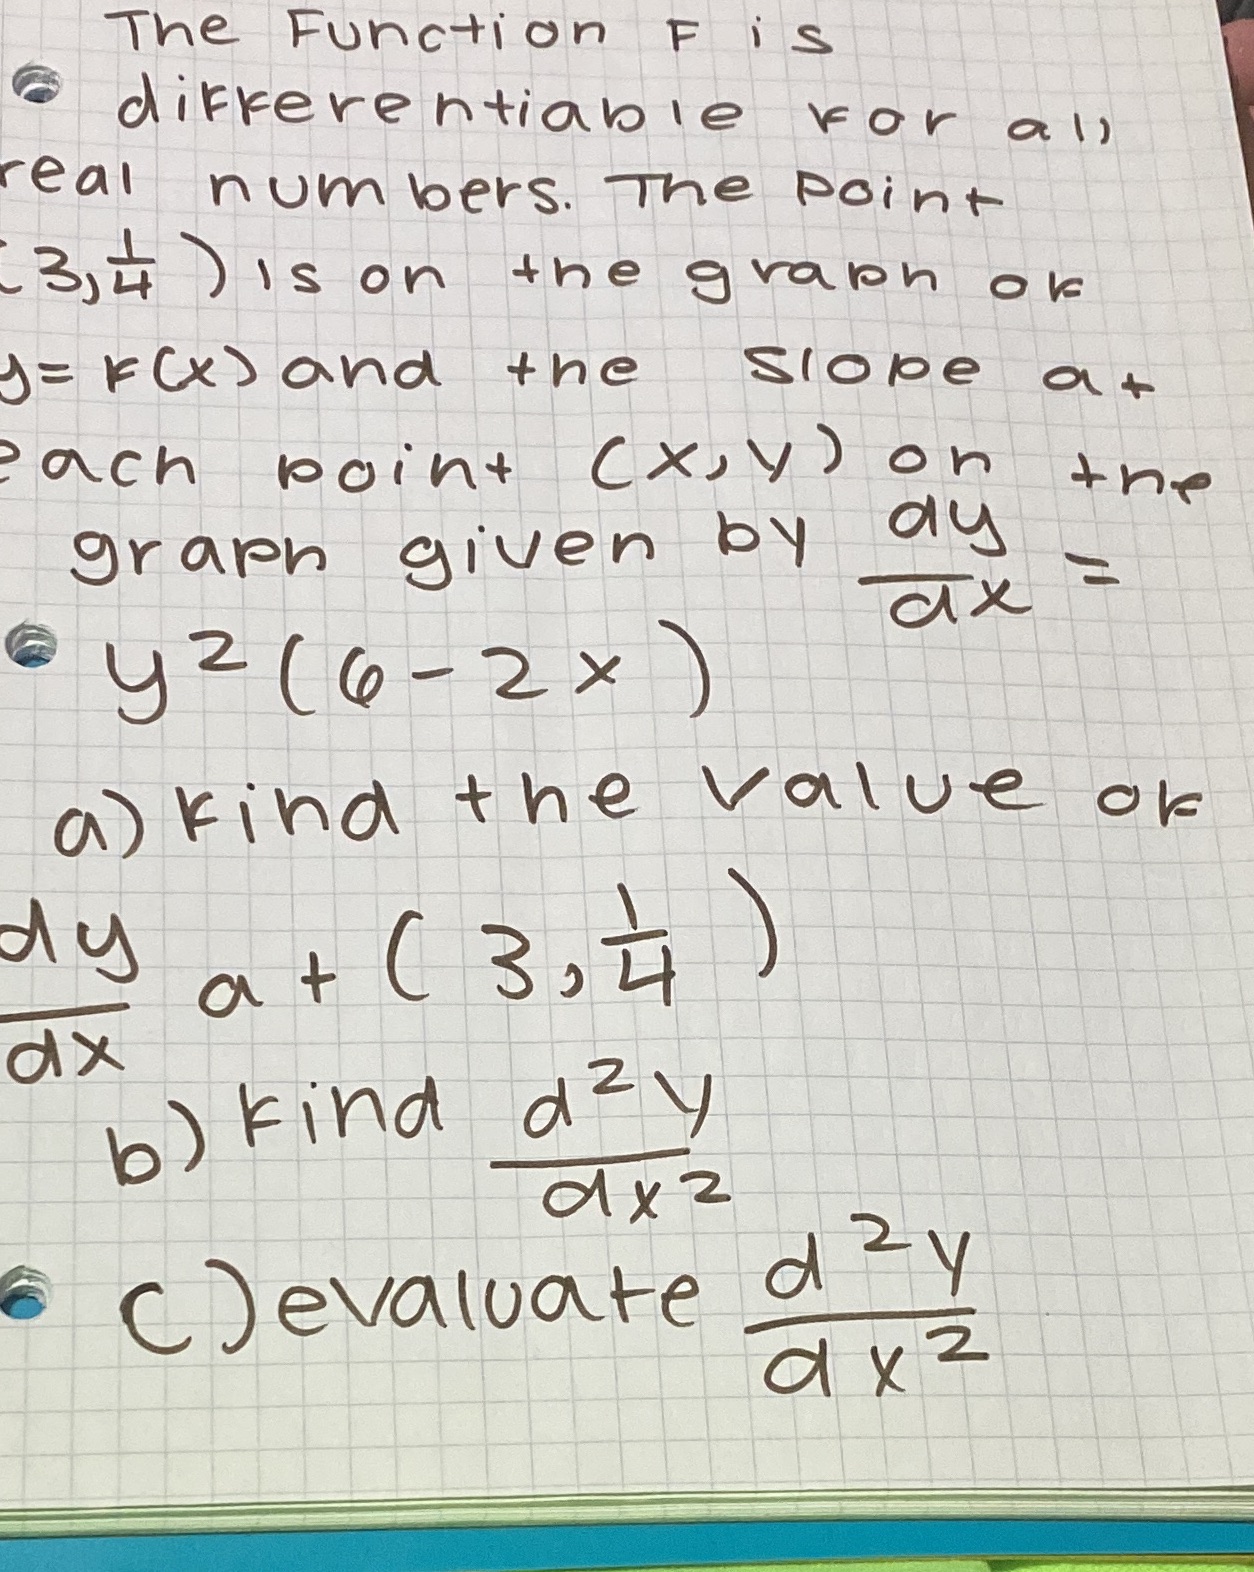 The Function F is
differentiable for all
real numbers. The point
(3, 1/4) is on the graph of
y = f(x) and the slope at
each point (x, y) on the
graph given by dy/dx =
y²(6 - 2x)
a) Find the value of
dy/dx at (3, 1/4)
b) Find d²y/dx²
c) evaluate d²y/dx²